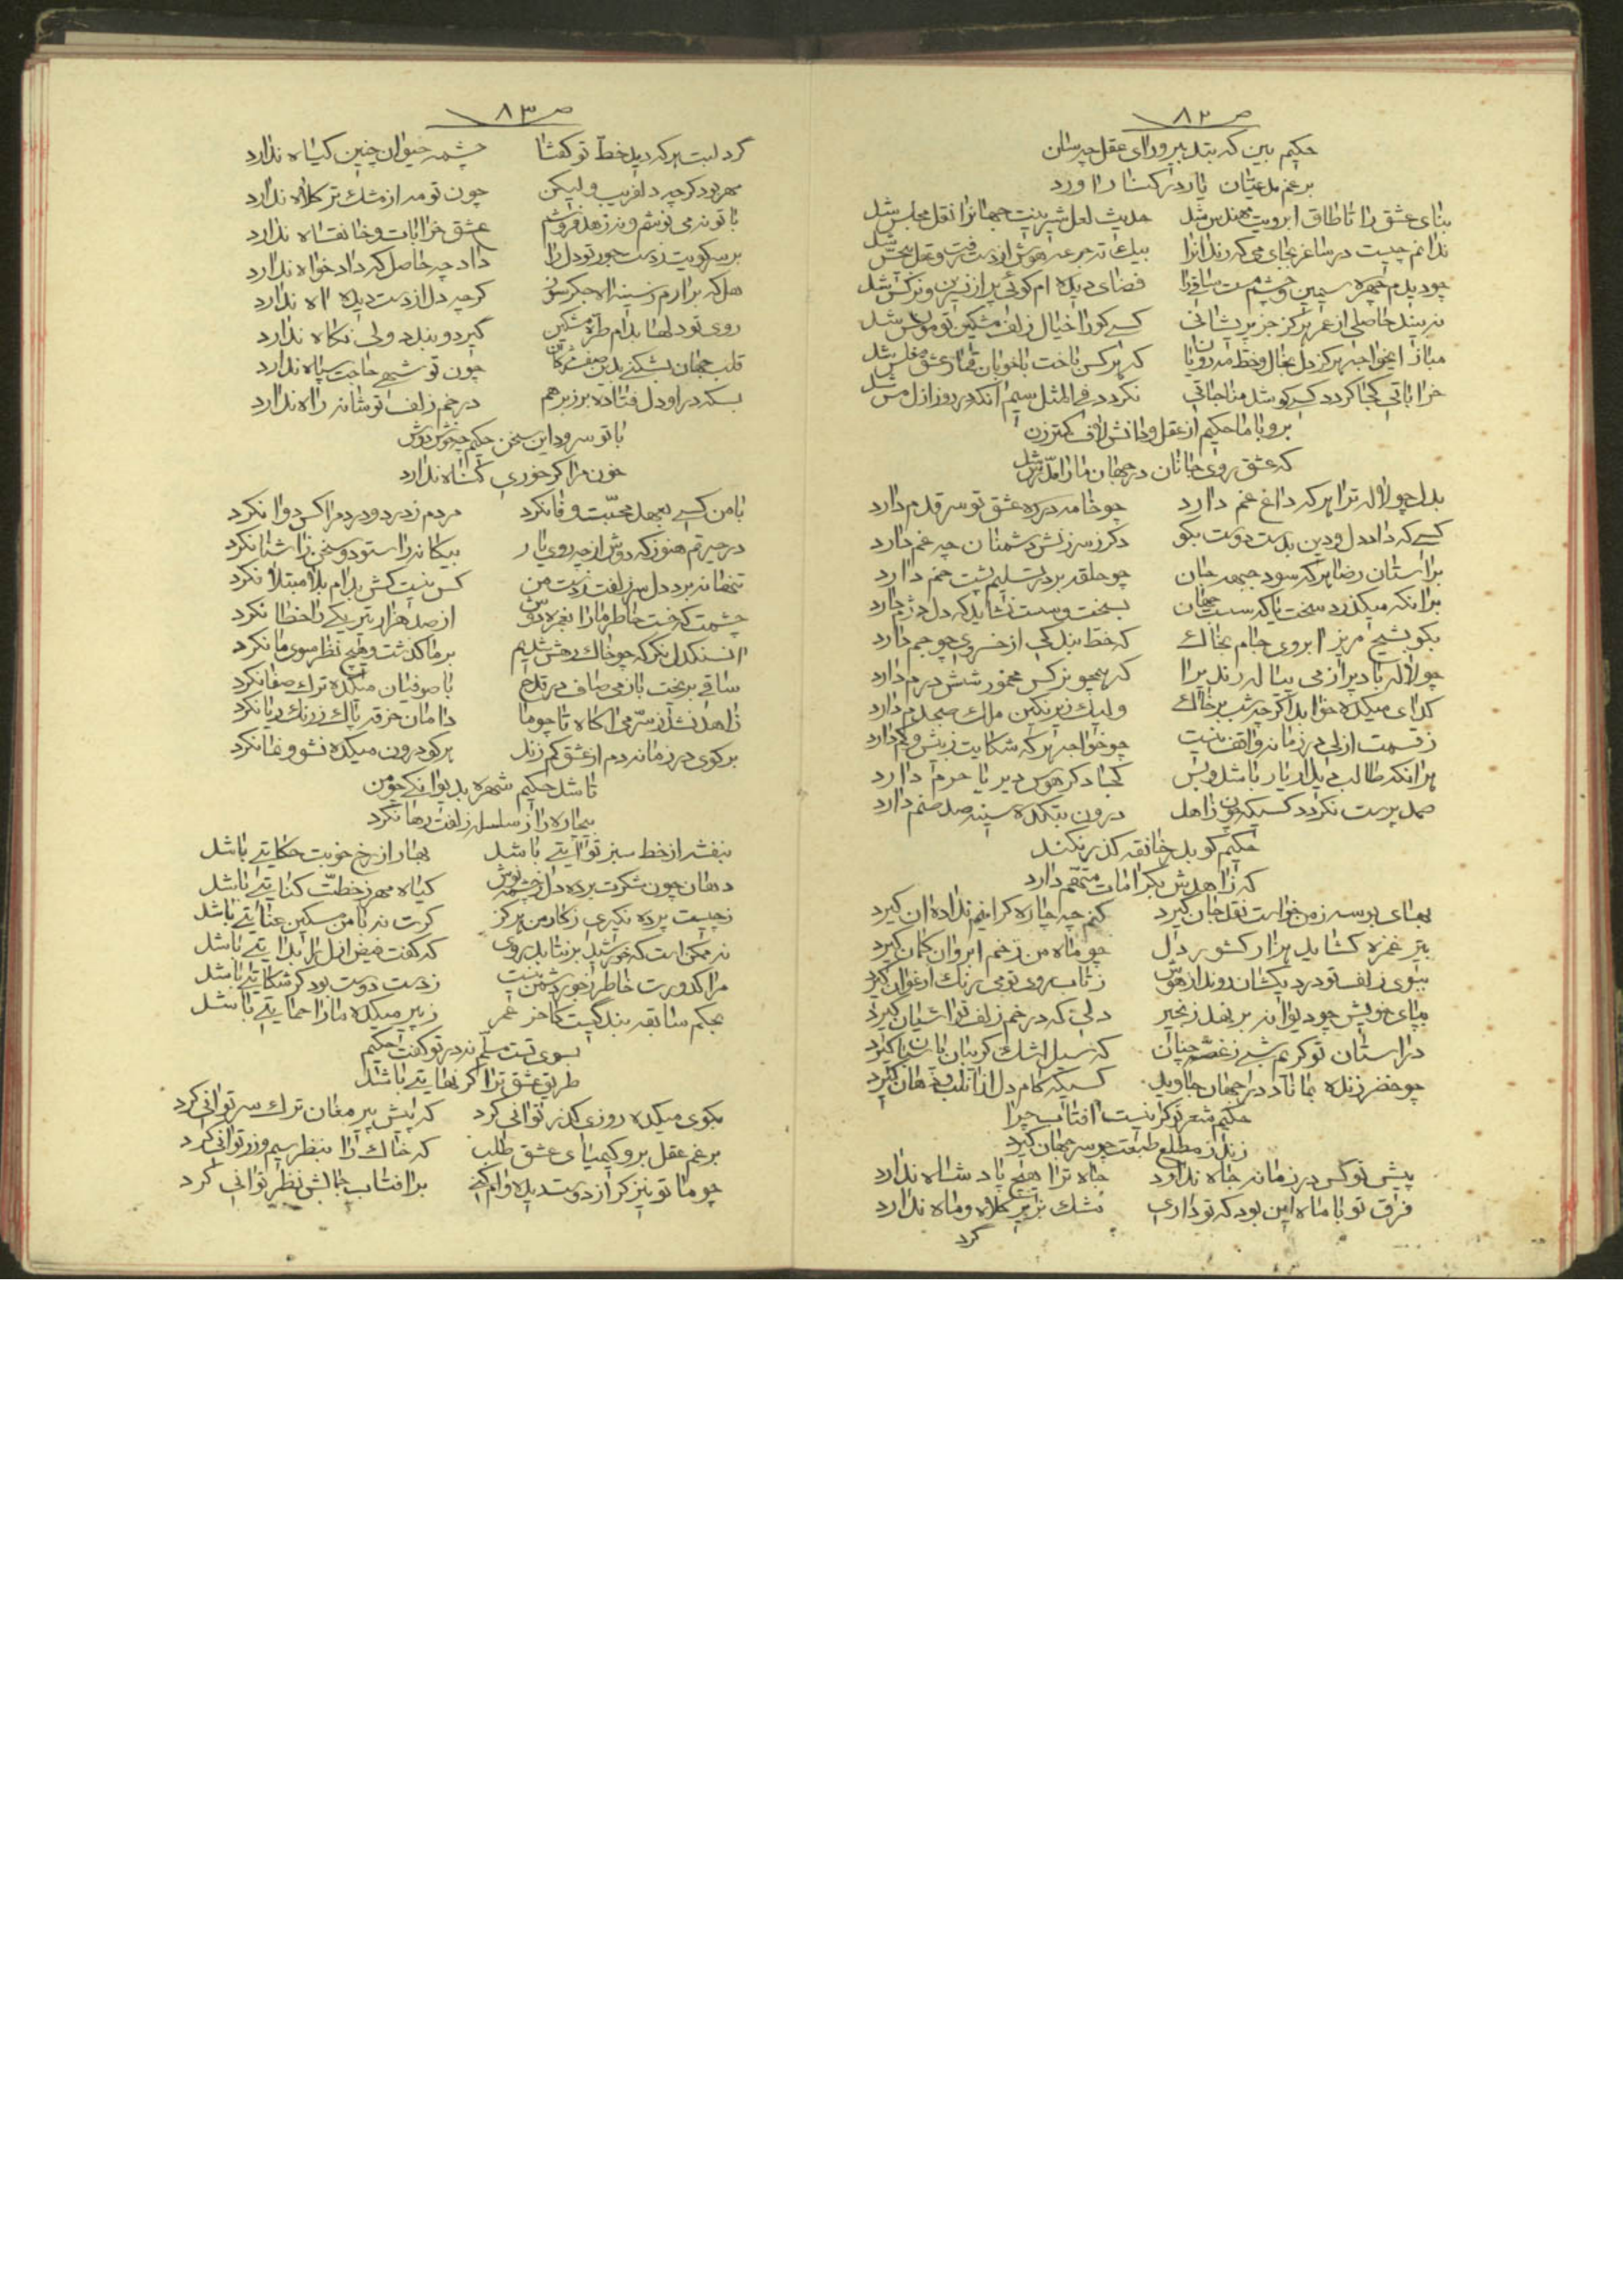 ص ۸۲
حکیم بین که بتدبیر ورای عقل چه سان
برغم مدعیان یار در کنار آورد
بنای عشق را تا طاق ابرویت مهندس شد حدیث لعل شیرینت جهانرا نقل مجلس شد
ندانم چیست در ساغر بجای می که رندانرا بیک ته جرعه هوش از دست رفت و عقل شد
چو دیدم چهره سیمین و چشم مست ساقی را فضای دیده ام کوئی پر از نسرین و نرکس شد
نه بیند حاصلی از عمر هرکز جز پریشانی کسے کورا خیال زلف مشکین تو مونس شد
مباز ایخواجه هرکز دل بخال و خط مه رویان که هر کس باخت با خوبان قمار عشق مفلس شد
خراباتی کجا کردد کسے کو شد مناجاتی نکردد فی المثل سیم آنکه در روز ازل مس شد
برو با ما حکیم از عقل و دانش لاف کمتر زن
که عشق روی جانان در جهان ما را مدرس شد
بدل چو لاله ترا هر که داغ غم دارد چو خامه در ره عشق تو سر قدم دارد
کسے که داد دل و دین بدست دوست بکو دکر ز سرزنش دشمنان چه غم دارد
بر آستان رضا هر که سود جبهه جان چو حلقه بر در تسلیم پشت خم دارد
بر آنکه میکذرد سخت یا که سست جهان بسخت و سست نشاید که دل دژم دارد
بکو بشیخ مریز آبروی جام بخاک که خط بندکی از خسروی چو جم دارد
چو لاله باد پر از می پیاله رندیرا که همچو نرکس مخمور شش درم دارد
کدای میکده خوابد اکر چه شب بر خاک ولیک زیر نکین ملک صبحدم دارد
ز قسمت ازلی در زمانه واقف نیست چو خواجه هر که شکایت ز بیش و کم دارد
هر آنکه طالب دیدار یار باشد و بس کجا دکر هوس دیر یا حرم دارد
صمد پرست نکردد کسیکه چون زاهد درون بتکده سینه صد صنم دارد
حکیم کو بدر خانقه کذر نکند
که زاهدش بکرامات متهم دارد
بهای بوسه ز من خواست نقد جان کیرد کنم چه چاره کر اینم نداده آن کیرد
بتیر غمزه کشاید هزار کشور دل چو ماه من ز خم ابروان کمان کیرد
ببوی زلف تو دردیکشان روند از هوش ز تاب روی تو می رنک ارغوان کیرد
بپای خویش چو دیوانه بر نهد زنجیر دلی که در خم زلف تو آشیان کیرد
در آستان تو کریم شبے ز غصه چنان که سیل اشک کریبان پاسبان کیرد
چو خضر زنده بماناد در جهان جاوید کسیکه کام دل از آن لب و دهان کیرد
حکیم شعر تو کر نیست آفتاب چرا
زند ز مطلع طبعت چو سر جهان کیرد
پیش تو کس در زمانه جاه ندارد جاه ترا هیچ پادشاه ندارد
فرق تو با ماه این بود که تو داری مشک بزیر کلاه و ماه ندارد
کرد
ص ۸۳
کرد لبت هر که دید خط تو کفتا چشمه حیوان چنین کیاه ندارد
مهر بود کرچه دلفریب ولیکن چون تو مه از مشک تر کلاه ندارد
با تو نه می نوشم و نه زهد فروشم عشق خرابات و خانقاه ندارد
بر سر کویت ز دست جور تو دل را داد چه حاصل که دادخواه ندارد
هل که برآرم ز سینه آه جکر سوز کرچه دل از دست دیده آه ندارد
روی تو دلها بدام طره مشکین کیرد و بندد ولی نکاه ندارد
قلب جهان بشکنے بدین صف مژکان چون تو شهے حاجت سپاه ندارد
بسکه در او دل فتاده بر زبر هم در خم زلف تو شانه راه ندارد
با تو سرود این سخن حکیم چه خوش دوش
خون مرا کر خوری کناه ندارد
با من کسے بعهد محبت وفا نکرد مردم ز درد و درد مرا کس دوا نکرد
در حیرتم هنوز که دوش از چه روی یار بیکانه را ستود و سخن ز آشنا نکرد
تنها نه برد دل سر زلفت ز دست من کس نیست کش بدام بلا مبتلا نکرد
چشمت که خست خاطر ما را بغمزه دوش از صد هزار تیر یکے را خطا نکرد
آن سنکدل نکر که چو خاک رهش شدیم بر ما کذشت و هیچ نظر سوی ما نکرد
ساقے بریخت باز می صاف در قدح با صوفیان میکده ترک صفا نکرد
زاهد نشد ز سر می آکاه تا چو ما دامان خرقه پاک ز رنک ریا نکرد
بر کوی در زمانه دم از عشق کم زند هر کو درون میکده نشو و نما نکرد
تا شد حکیم شهره بدیوانکے چو من
بیچاره را ز سلسله زلفت رها نکرد
بنفشه از خط سبز تو آیتے باشد بهار از رخ خوبت حکایتے باشد
دهان چون شکرت برده دل ز چشمه نوش کیاه مهر ز خطت کنایتے باشد
ز چیست پرده نکیری ز کار من هرکز کرت نه با من مسکین عنایتے باشد
نه ممکن است که خورشید بر نتابد روی که کفت فیض ازل را بدایتے باشد
مرا کدورت خاطر ز جور دشمن نیست ز دست دوست بود کر شکایتے باشد
بحکم سابقه بندکیست کاخر عمر ز پیر میکده ما را حمایتے باشد
بسوی تست مسلم نه در تو کفت حکیم
طریق عشق ترا کر نهایتے باشد
بکوی میکده روزی کذر توانی کرد که پیش پیر مغان ترک سر توانی کرد
برغم عقل برو کیمیای عشق طلب که خاک را بنظر سیم و زر توانی کرد
چو ما تو نیز کر از دوست دیده وام کنے بر آفتاب جمالش نظر توانی کرد